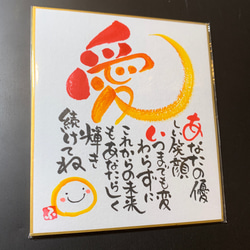 愛
あなたの優
しい笑顔
いつまでも変
わらずに
これからの未来
もあなたらしく
輝き
続けてね